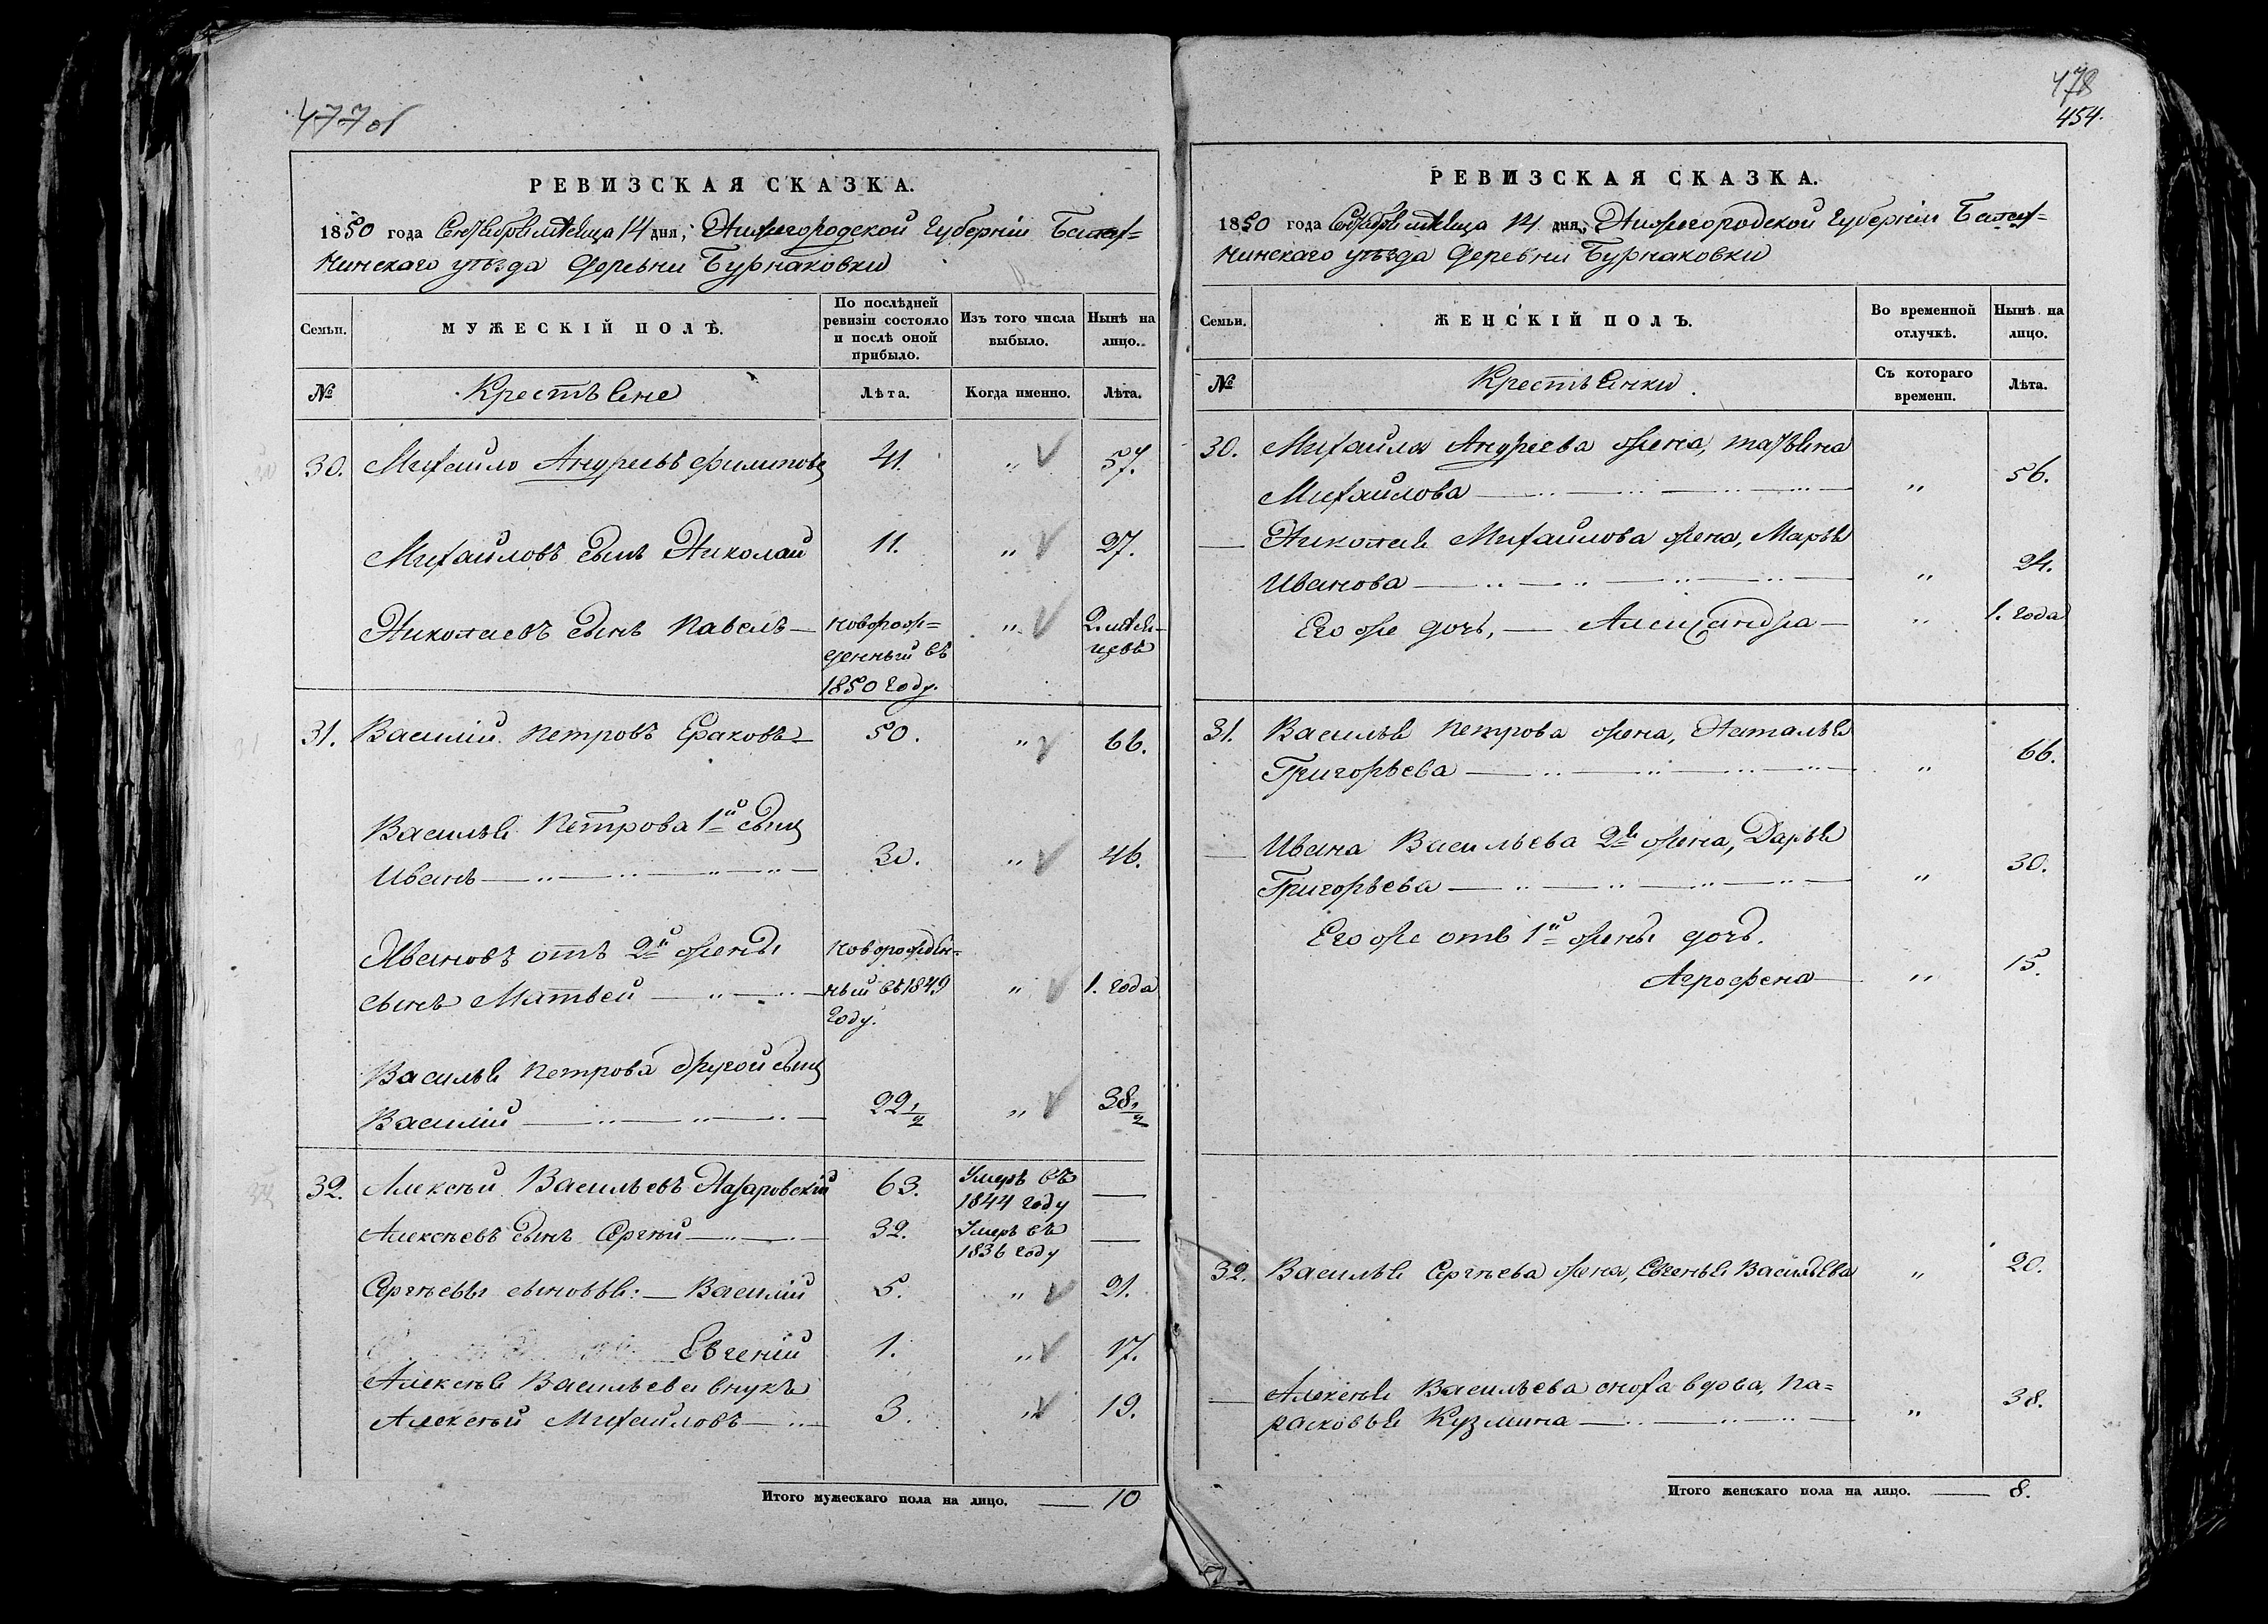 477 об
РЕВИЗСКАЯ СКАЗКА.
1850 года Сентября мѣсяца 14 дня, Нижегородской Губерніи Балах-
нинскаго уѣзда Деревни Бурнаковки
Семьи.
МУЖЕСКІЙ ПОЛЪ.
По послѣдней
ревизіи состояло
и послѣ оной
прибыло.
Изъ того числа
выбыло.
Нынѣ на
лицо.
№
Крестьяне
Лѣта.
Когда именно.
Лѣта.
30. Михайло Андреевъ Филиповъ 41. " 57.
Михайловъ сынъ Николай 11. " 27.
Николаевъ сынъ Павелъ — новорож- " 2. мѣся-
денный въ цевъ
1850 году.
31. Василій Петровъ Ераковъ 50. " 66.
Василья Петрова 1й сынъ
Иванъ 30. " 46.
Ивановъ отъ 2й жены новорожден-
сынъ Матвей ный въ 1849 " 1. года
году.
Василья Петрова другой сынъ
Василій 22 1/2 " 38 1/2
32. Алексѣй Васильевъ Назаровскій 63. Умеръ въ —
1844 году
Алексѣевъ сынъ Сергѣй 32. Умеръ въ —
1836 году
Сергѣевы сыновья: — Василій 5. " 21.
Евгеній 1. " 17.
Алексѣя Васильева внукъ
Алексѣй Михайловъ 3. " 19.
Итого мужескаго пола на лицо. — 10
478
454.
РЕВИЗСКАЯ СКАЗКА.
1850 года Сентября мѣсяца 14 дня, Нижегородской Губерніи Балах-
нинскаго уѣзда Деревни Бурнаковки
Семьи.
ЖЕНСКІЙ ПОЛЪ.
Во временной
отлучкѣ.
Нынѣ на
лицо.
№
Крестьянки.
Съ котораго
времени.
Лѣта.
30. Михайла Андреева жена, Татьяна
Михайлова " 56.
— Николая Михайлова жена, Марья
Иванова " 24.
Его же дочь, — Александра — " 1. года
31. Василья Петрова жена, Наталья
Григорьева " 66.
— Ивана Васильева 2я жена, Дарья
Григорьева " 30.
Его же отъ 1й жены дочь.
Агрофена " 15.
32. Василья Сергѣева жена, Евгенья Васильева " 20.
— Алексѣя Васильева сноха вдова, Па-
расковья Кузмина " 38.
Итого женскаго пола на лицо. — 8.